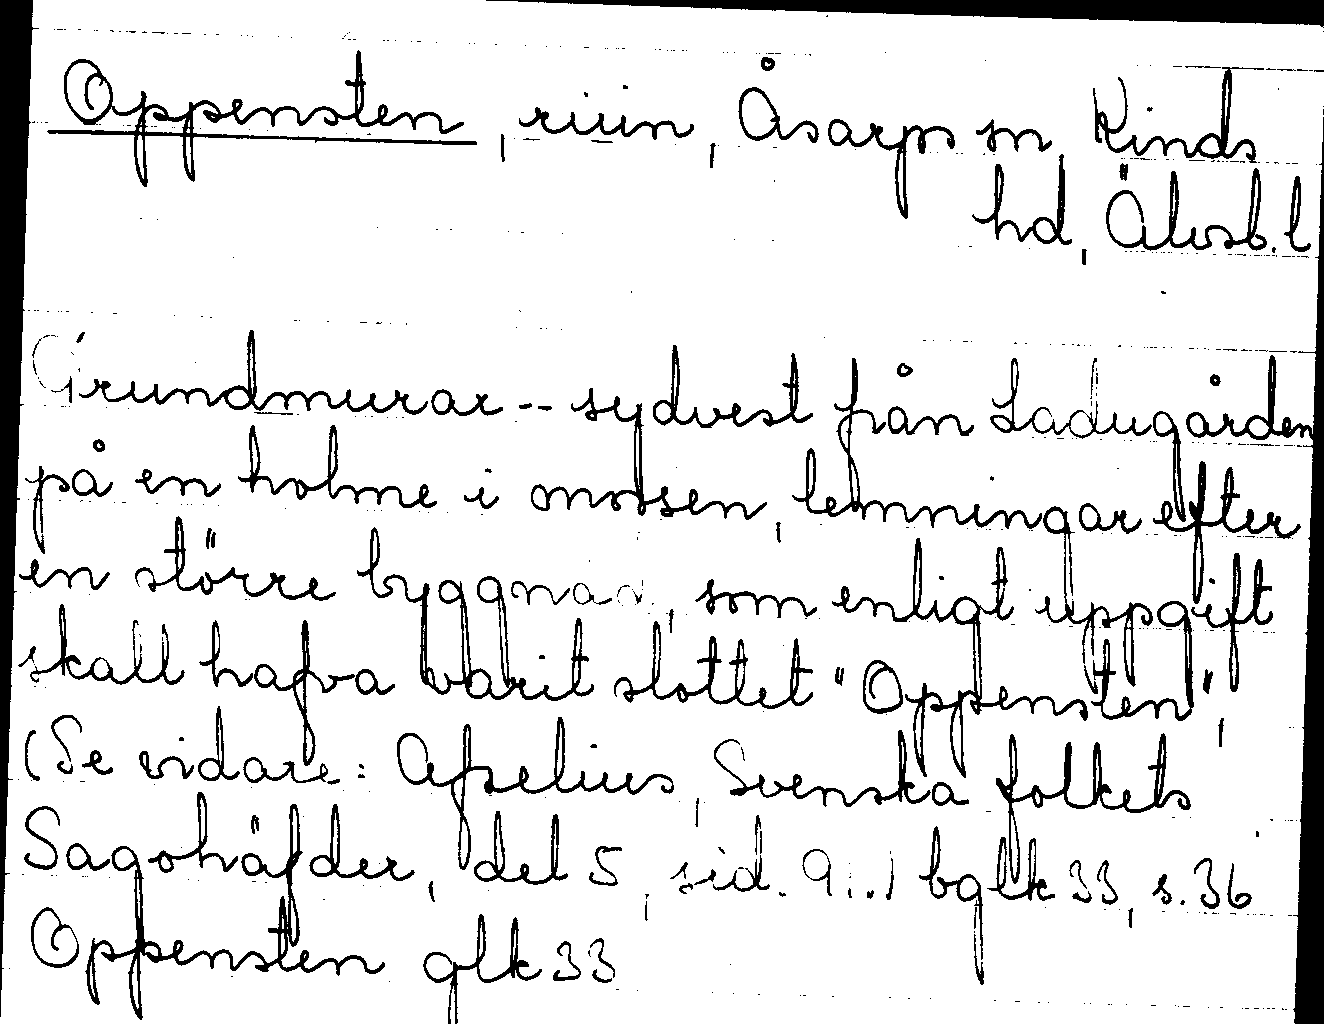 Oppensten, ruin, Åsarps sn, Kinds
hd, Älvsb. l
Grundmurar -- sydvest från Ladugården
på en holme i mossen, lemningar efter
en större byggnad, som enligt uppgift
skall hafva varit slottet "Oppensten",
(Se vidare: Afzelius, Svenska folkets
Sagohäfder, del 5, sid. 9..) bglk 33, s. 36
Oppensten glk 33